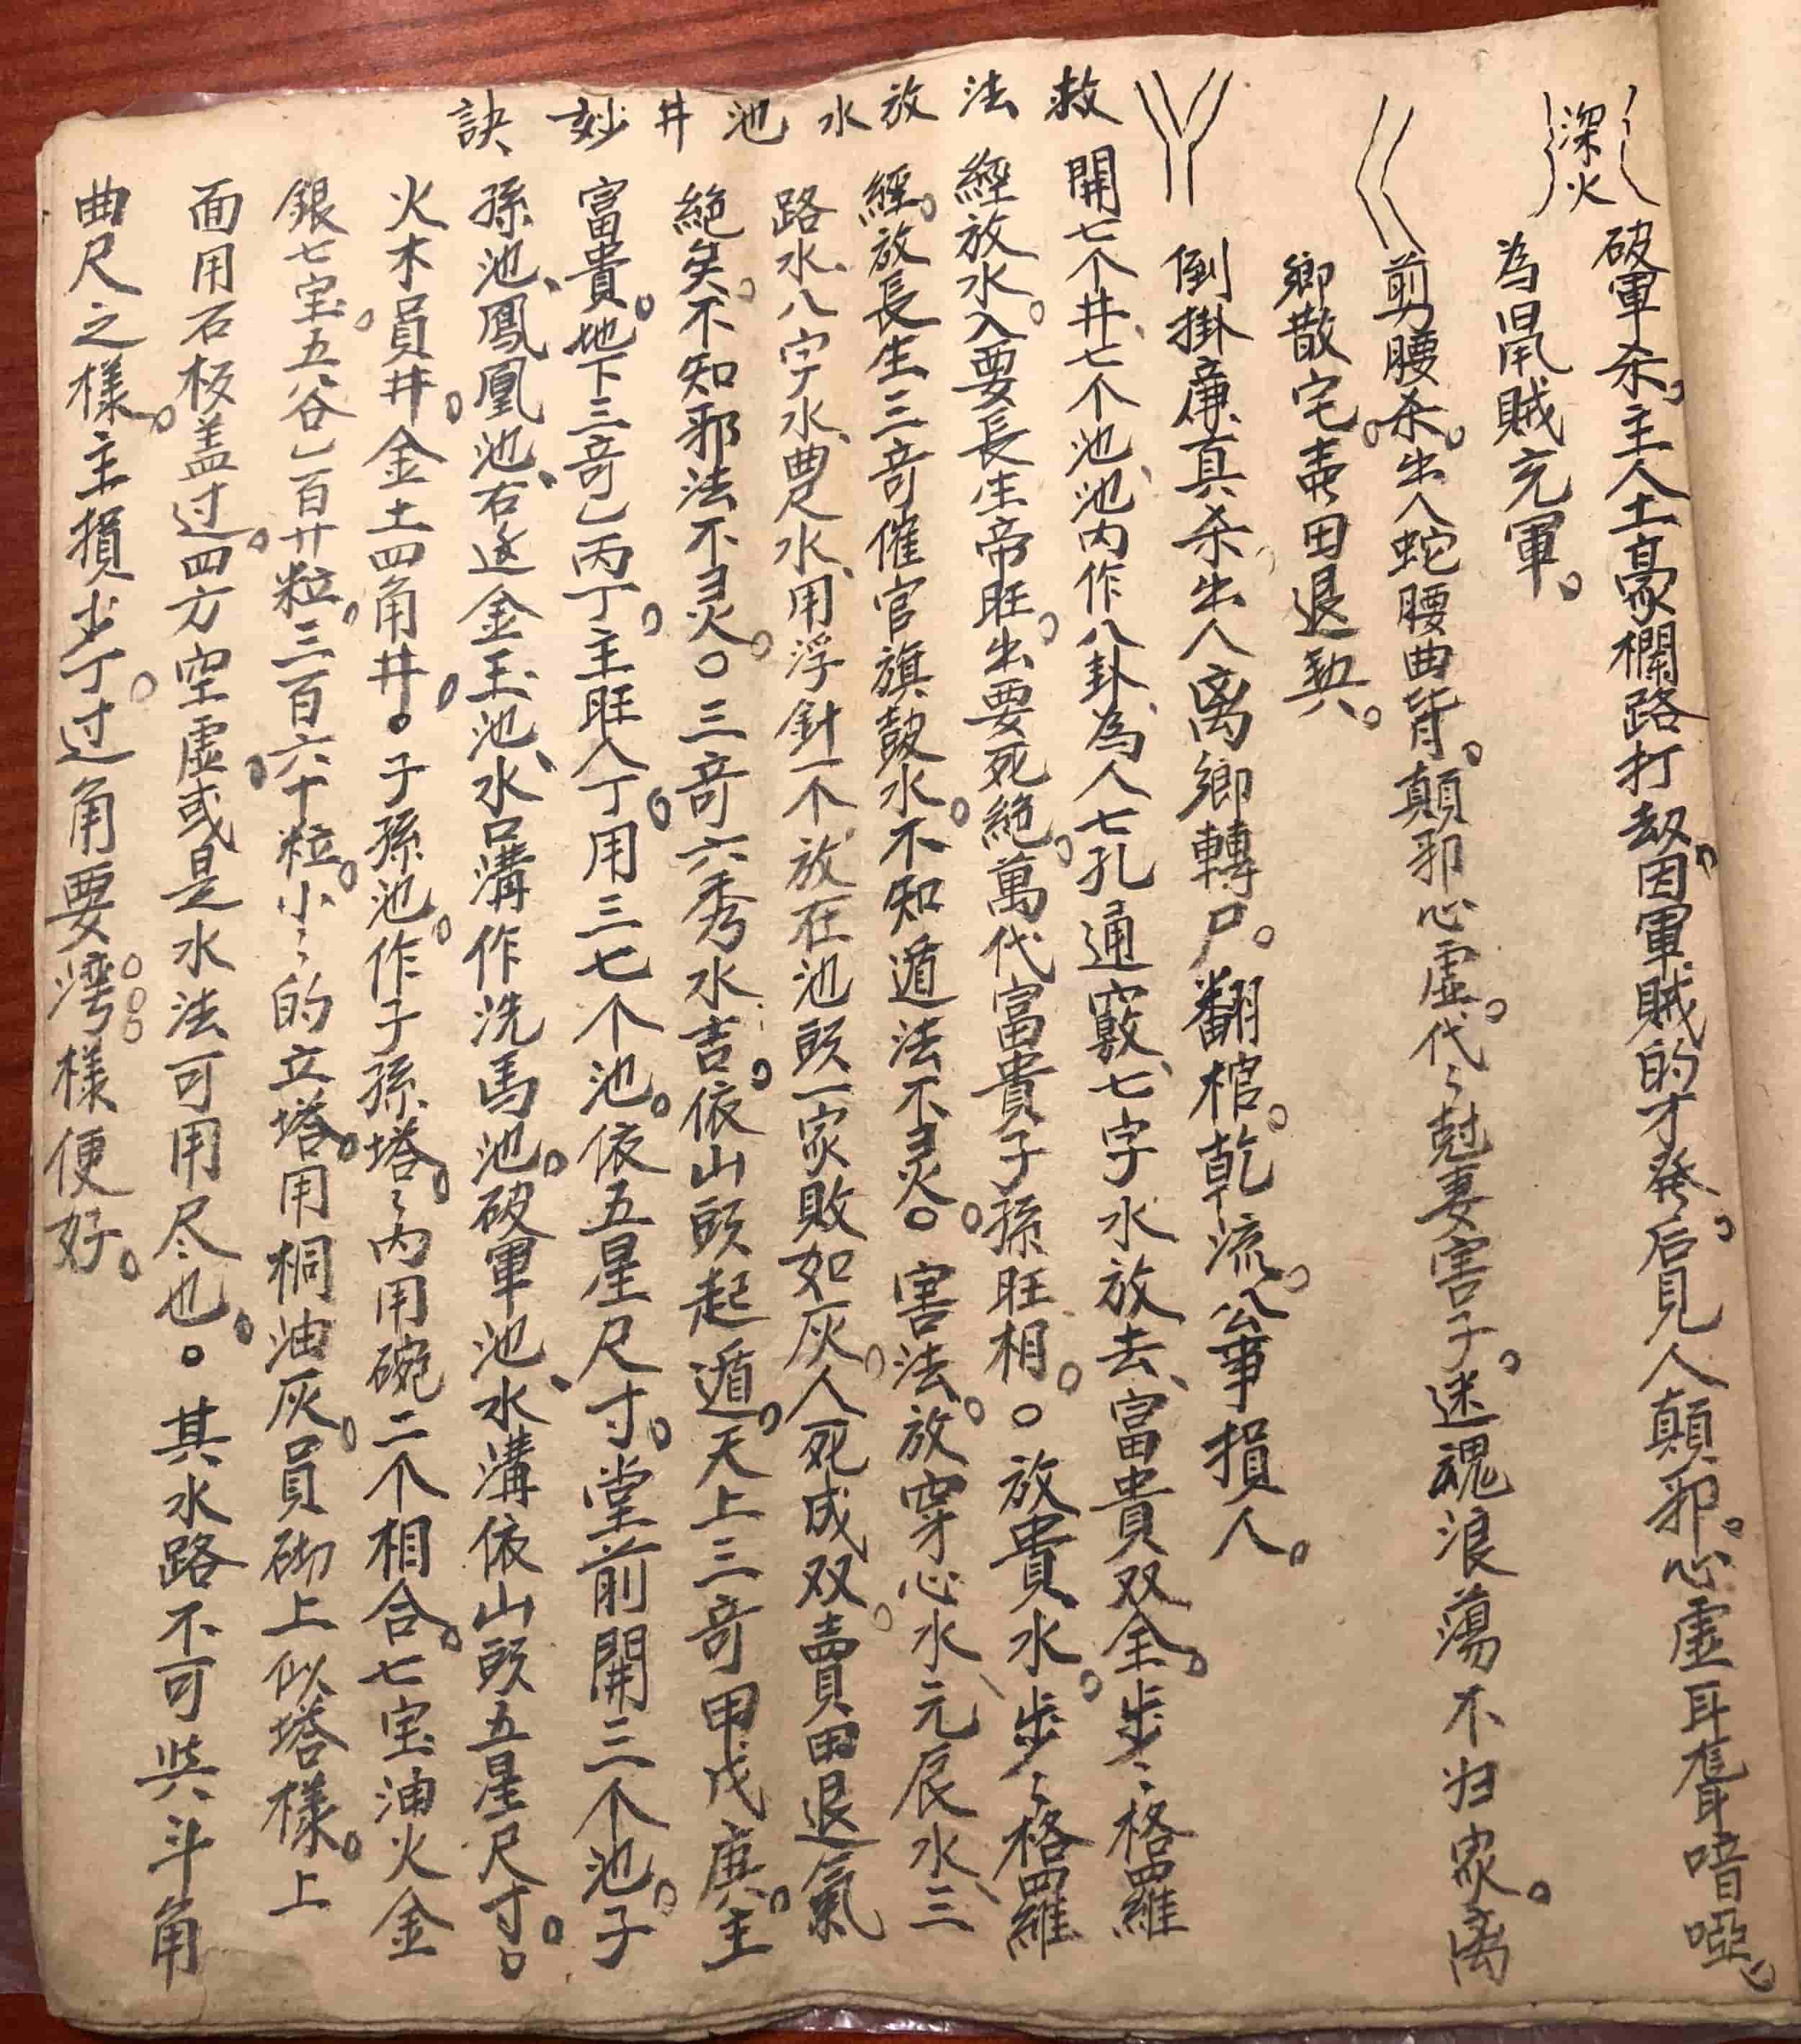 深火
破軍杀。主人土豪欄路打刼。因軍賊的才発。后見人顛邪。心虚耳聋喑啞。
為賊充軍。
剪腰杀。出人蛇腰曲背。顛邪心虚。代〻尅妻害子。迷魂浪蕩不归家。离
鄉散宅。卖田退契。
倒掛廉真杀。出人离鄉轉尸。翻棺。乾流。公事損人。
救法放水池井妙訣
開七个井、七个池、池内作八卦、為人七孔通竅、七字水放去、富貴双全。步〻格羅
經放水。入要長生帝旺。出要死絶。萬代富貴子孫旺相。○放貴水。步〻格羅
經。放長生三竒催官旗鼓水。不知遁法不灵。○害法。放穿心水、元辰水、三
路水、八字水、曲尺水、用浮針一个放在池頭一家敗如灰。人死成双。賣田退氣
絶矣。不知邪法不灵。○三竒六秀水吉。依山頭起遁。天上三竒甲戊庚。主
富貴。地下三竒乚丙丁。主旺人丁。用三七个池。依五星尺寸。堂前開三个池。子
孫池、鳳凰池、右边金玉池、水口溝作洗馬池。破軍池、水溝依山頭五星尺寸。○
火木員井。金土四角井。○子孫池。作子孫塔。〻内用碗二个相合。七宝油火金
銀七宝。五谷乚百廿粒。三百六十粒。小〻的立塔。用桐油灰。員砌上似塔樣。上
面用石板盖过。四方空虚或是水法可用尽也。○其水路不可㘴斗角
曲尺之樣。主損少丁。过角要湾。樣便好。